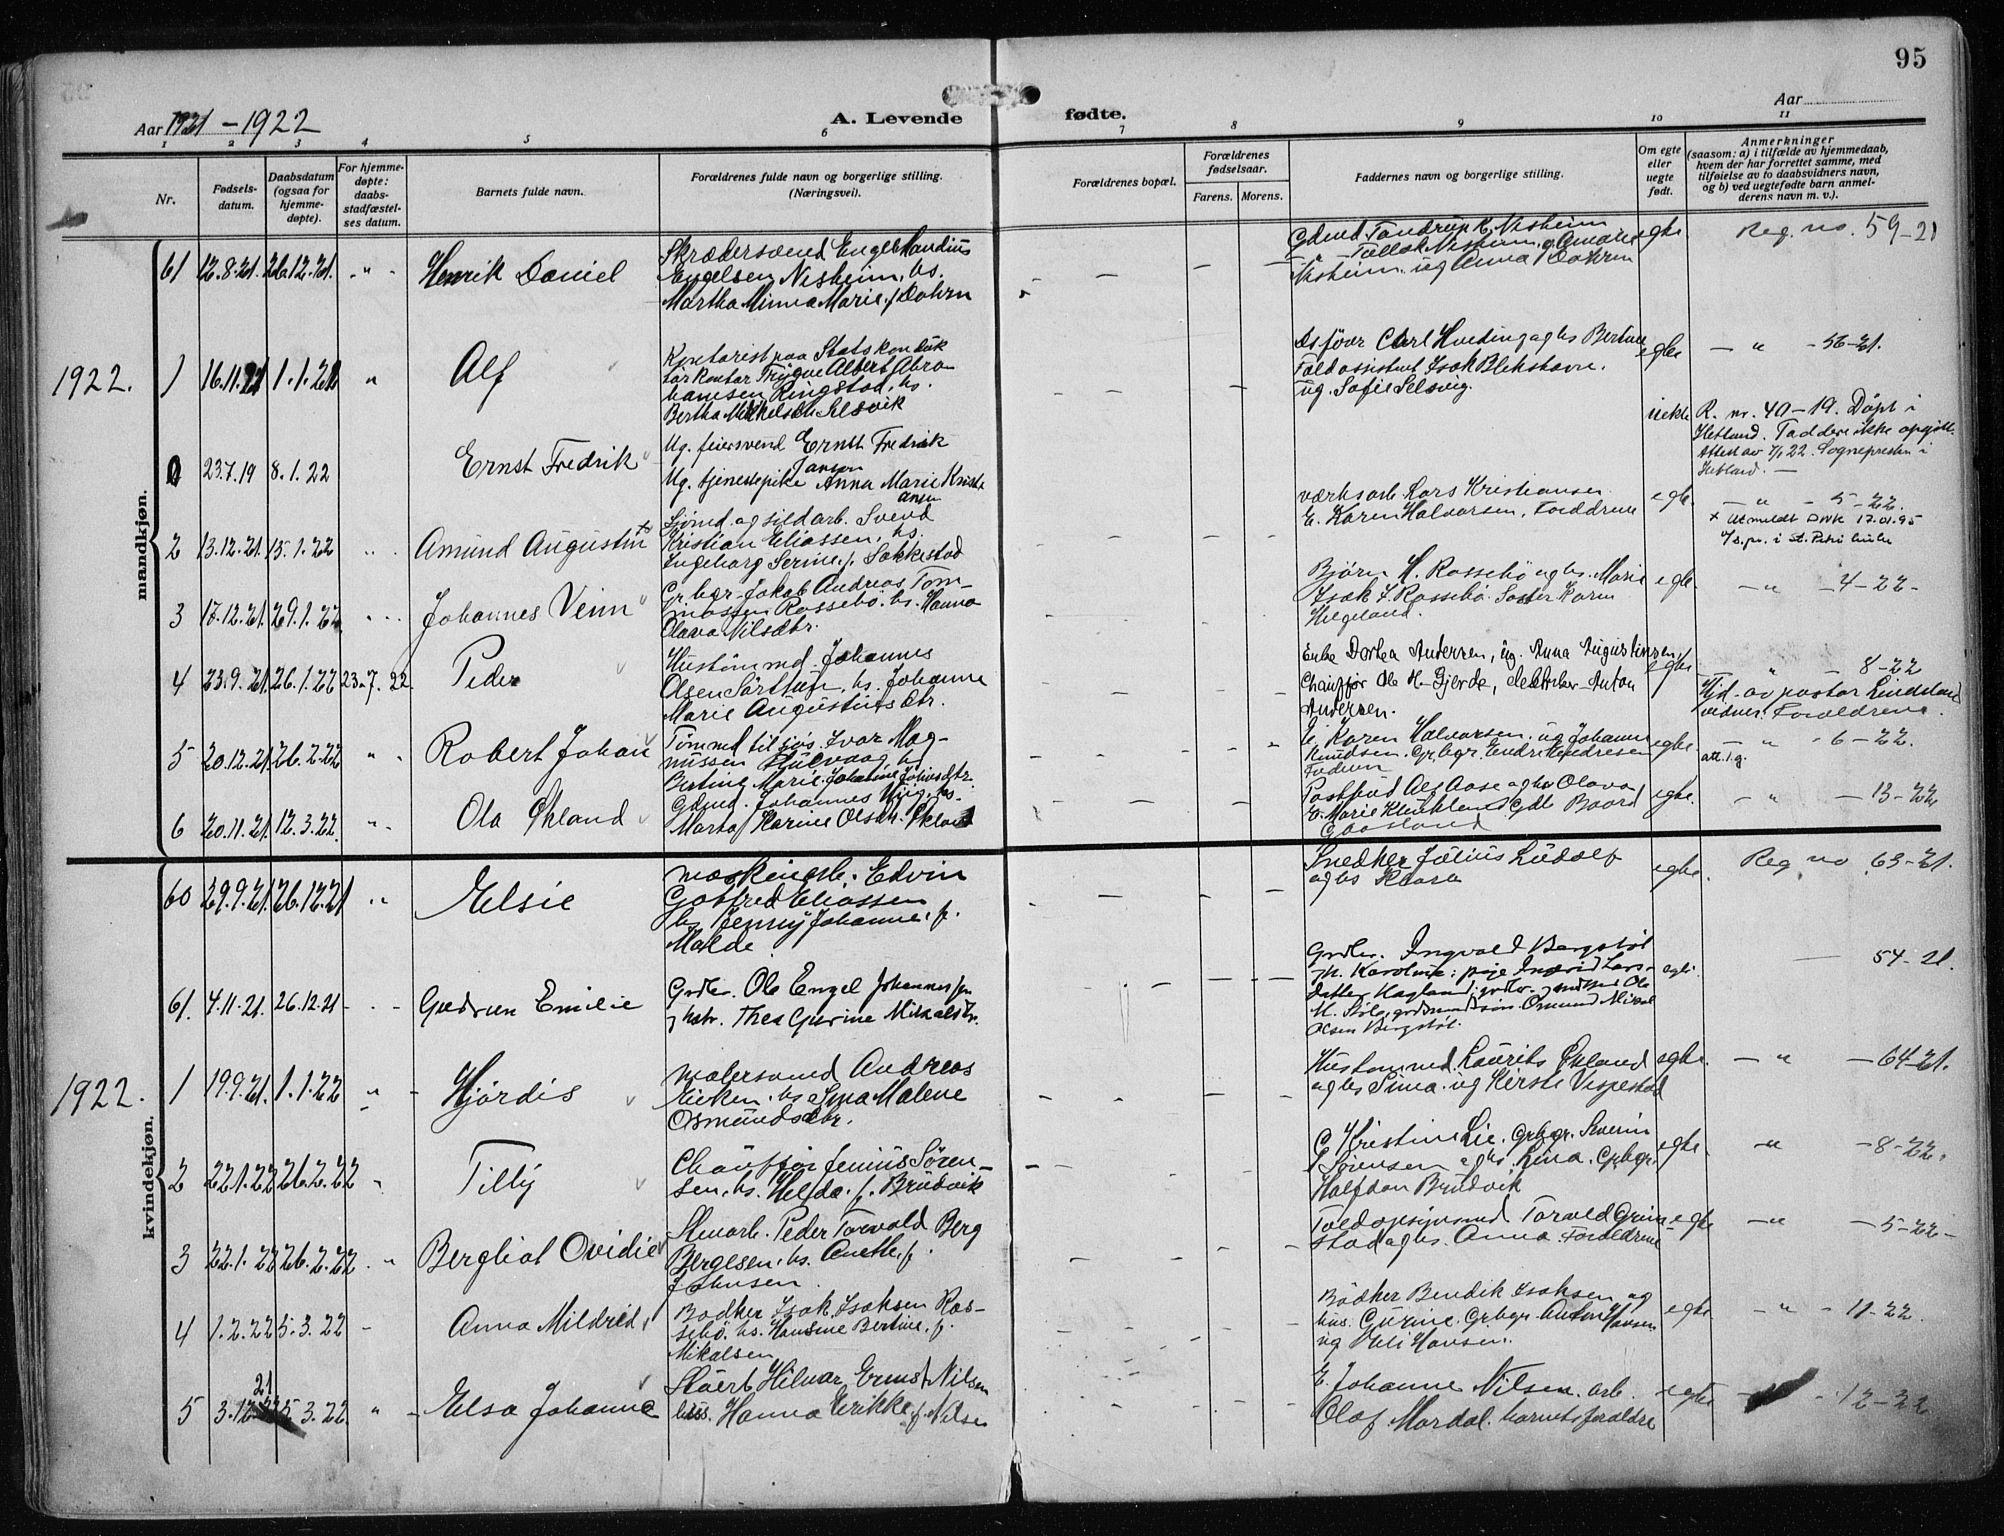 95
Aar 1921 – 1922
A. Levende
fødte.
Aar
1 2 3 4 5 6 7 8 9 10 11
Nr.
Fødsels-
datum.
Daabsdatum
(ogsaa for
hjemme-
døpte).
For hjemme-
døpte:
daabs-
stadfæstel-
ses datum.
Barnets fulde navn.
Forældrenes fulde navn og borgerlige stilling.
(Næringsvei).
Forældrenes bopæl.
Forældrenes
fødselsaar.
Farens. Morens.
Faddernes navn og borgerlige stilling.
Om egte
eller
uegte
født.
Anmerkninger
(saasom: a) i tilfælde av hjemmedaab,
hvem der har forrettet samme, med
tilføielse av to daabsvidners navn,
og b) ved uegtefødte barn anmel-
derens navn m. v.).
mandkjøn.
61 12.8.21. 26.12.21. Henrik Daniel
Skræddersvend Engel
Engelsen Nisheim, hs.
Martha Minna Marie f. Dohrn
Nisheim. ug Anna Dohrn
egte Reg. no. 59-21
1922. 1 16.11.21 1.1.22 " Alf
Kontorist paa Statskonduk
tørkontor Trygve Albert Abra
hamsen Ringstad, hs.
Bertha Mikkelsdtr Selsvik
Carl Hveding og hs Bertine
Toldassistent Isak Blikshavn.
ug. Sofie Selsvig.
egte — " - 56-21.
0 23.7.19 8.1.22 Ernst Fredrik
Ug. feiersvend Ernst Fredrik
Jansen
Ug. tjenestepike Anna Marie Kristi
ansen
uekte R. nr. 40-19. Døpt i
Hetland. Faddere ikke opgitt.
Attest av 7/1 22. Sognepresten i
Hetland. —
2 13.12.21. 15.1.22 Amund Augustin x
Sjømd. og sildarb. Svend
Kristian Eliassen, hs.
Ingeborg Serine f. Sakkestad
værksarb Lars Kristiansen.
E. Karen Halvorsen, Forældrene
egte — " - 5-22.
x Utmeldt DnK 17.01.95
i St. Petri kirke
3 17.12.21. 29.1.22. Johannes Veim
Gr.bgr. Jakob Andreas Tom-
massen Rossebø, hs. Hanna
Olava Nilsdtr.
Bjørn H. Rossebø og hs. Marie
Isak T. Rossebø. Søster Karen
Helgeland.
egte — " - 4-22-
4 23.9.21. 26.1.22 23.7.22. Peder
Hustømmd. Johannes
Olsen Sørtun, hs. Johanne
Marie Augustinsdtr.
Enke Dortea Andersen, ug. Anna Augustinsen,
Chauffør Ole H. Gjerde, elektriker Anton
Andersen.
egte " - 8-22
Hjd. av pastor Lindeland
vidner: Forældrene.
5 20.12.21. 26.2.22 " Robert Johan
Tømmd til sjøs Ivar Mag-
nussen
Bertine Marie Johannesdtr.
E. Karen Halvorsen, ug Johanne
Knudsen. Gr.bgr. Endre Endresen
egte. — " - 6-22.
att. i.g.
6 20.11.21. 12.3.22. Ola Økland
Gdmd. Johannes
Marta Karine Olsdtr. Økland
Postbud Alf Aase og hs Olava
E. Marie
Gaasland
egte. — " — 13-22
kvindekjøn.
60 29.9.21. 26.12.21 " Elsie
Maskinarb. Edvin
Gotfred Eliassen
hs Jenny Johanne, f.
Malde.
Snedker Julius Ludolf
og hs Kaarb
egte. Reg no 63-21.
61. 4.11.21. 26.12.21 Gudrun Emilie
Grdbr. Ole Engel Johannessen
hstr. Thea Gurine Mikalsdtr.
Grdbr. Ingvald Bergstøl
M. Karoline: pige Ingrid Lars-
datter Hagland; grdbr. Ole
M. Stole, Osmund Mikal
Olsen Bergstøl.
egte. — 54-21.
1922. 1 19.9.21. 1.1.22 " - Hjørdis
Malersvend Andreas
Eieken, hs Sina Malene
Osmundsdtr.
Hustømmd Laurits Økland
og hs Sina. ug Kirsti Vispestad
egte. — " — 64-21.
2 22.1.22 26.2.22 " Tilly
Chauffør Jenius Søren-
sen, hs. Helga. f. Brudvik
E Kristine Lie. Gr.bgr. Severin
Sørensen og hs. Lina. Gr.bgr.
Halfdan Brudvik
egte " — 8-22.
3 22.1.22 26.2.22 " Bergliot Ovidie
Stuarb. Peder Torvald Berg
Bergesen, hs. Anette f.
Johnsen
Toldopsynsmd Torvald Grin
stad og hs. Anna. Forældrene
egte — " — 5-22-
4 1.2.22 5.3.22 - Anna Mildred
Bødker Isak Isaksen Ros-
sebø, hs. Hansine Bertine, f.
Mikalsen
Bødker Bendik Isaksen og
hus. Gurine. Gr.bgr. Anton Hansen
ug Hansen.
egte — " - 11-22.
21
5 3.12.22 5.3.22. " - Elsa Johanne
Stuert Hilmar Ernst Nilsen
hus. Hanna Erikke, f. Nilsen
E. Johanne Nilsen. arb.
Olaf Mardal. barnets forældre
egte - - 12-22